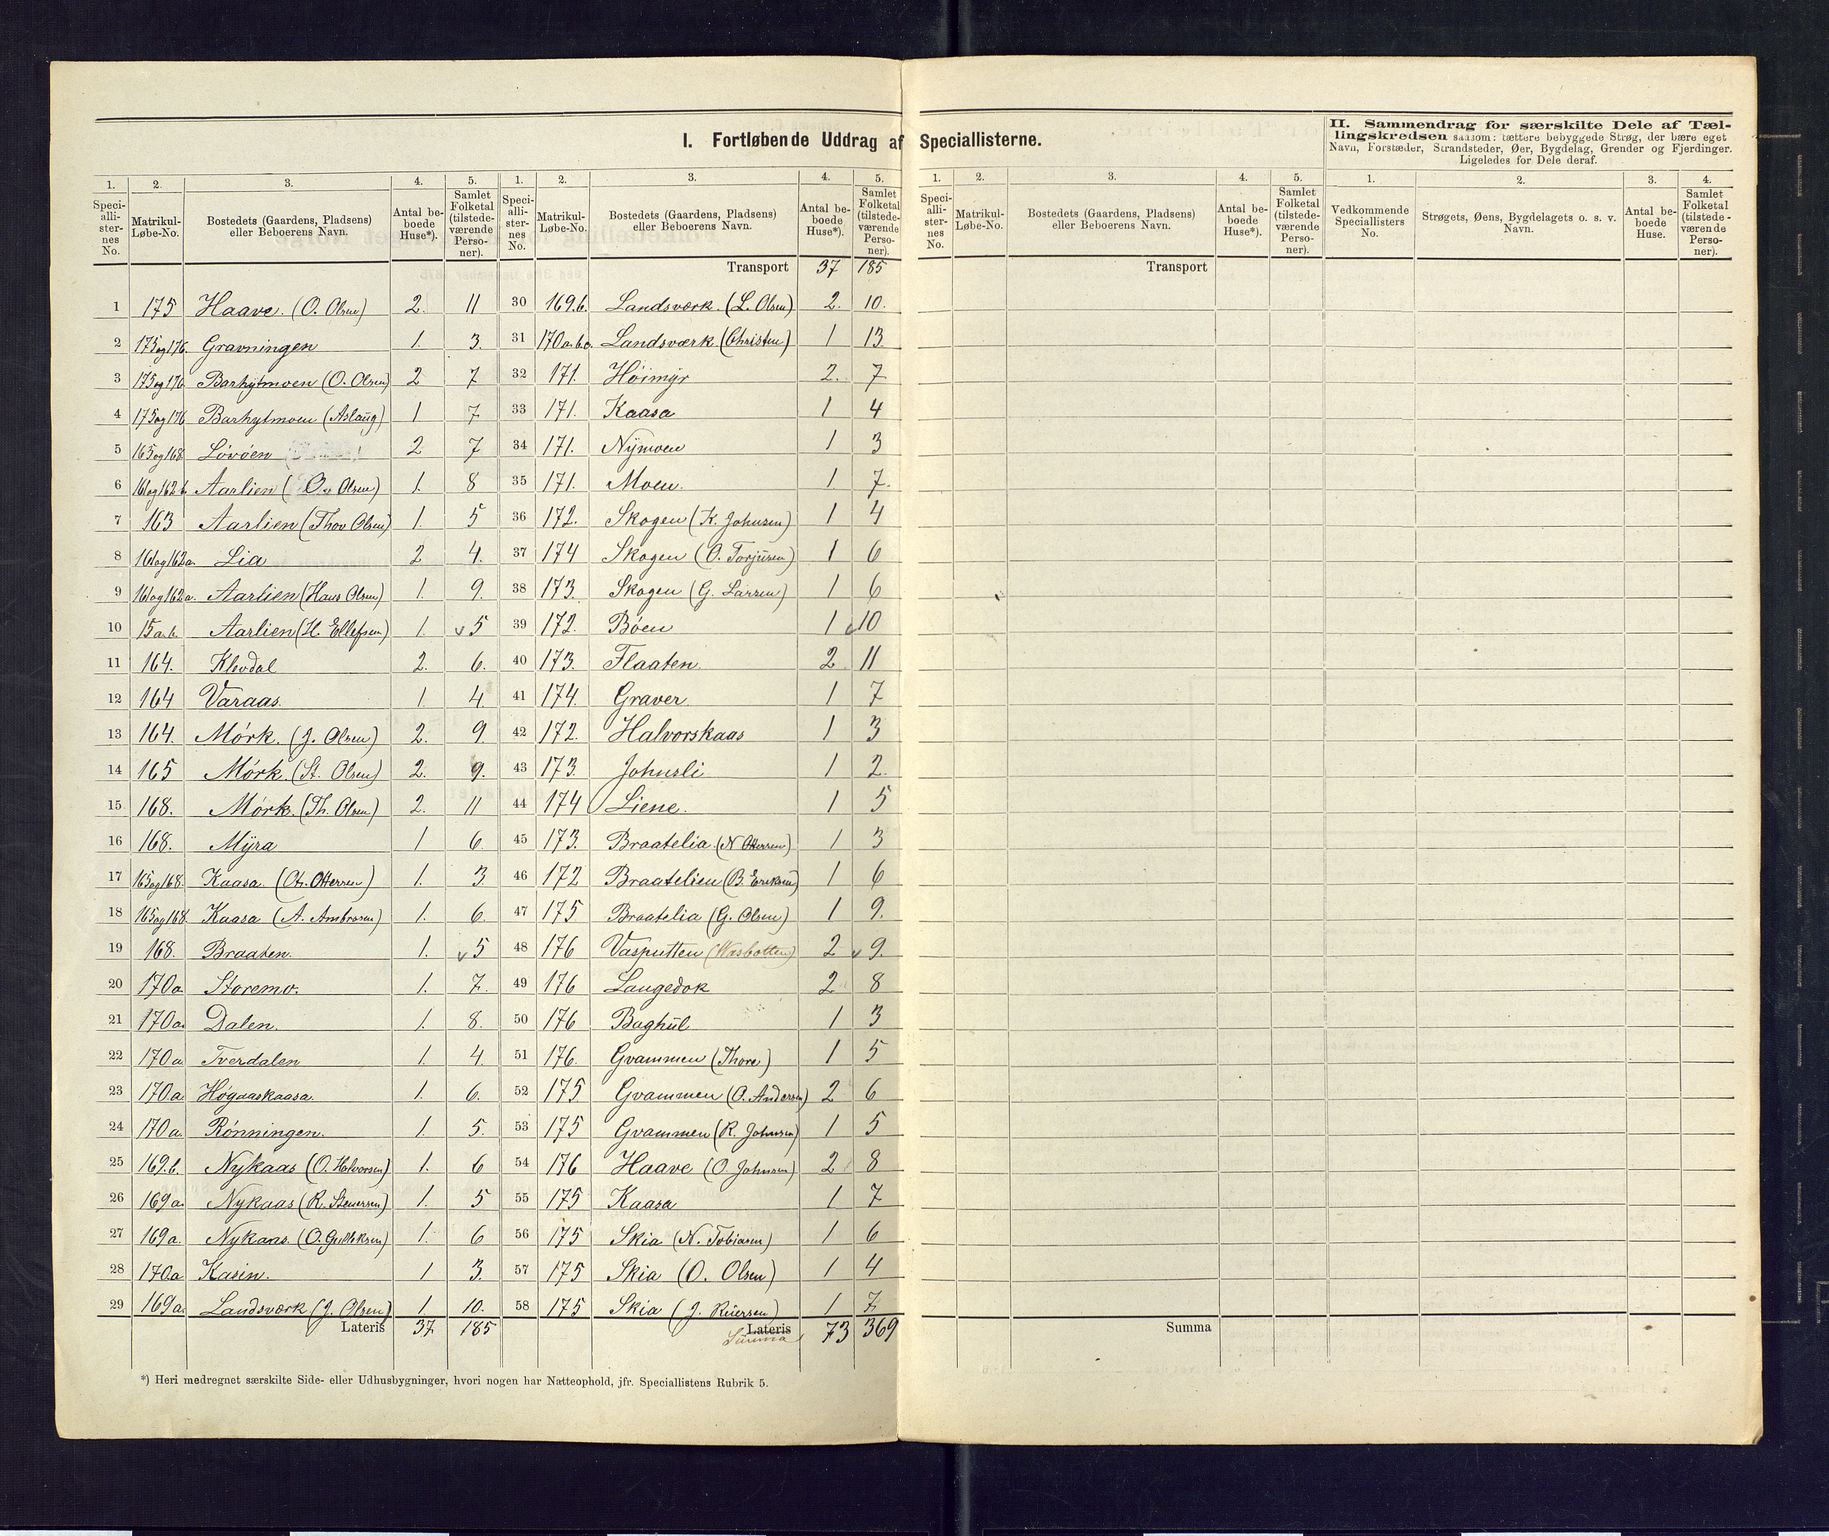 I. Fortløbende Uddrag af Speciallisterne.
II. Sammendrag for særskilte Dele af Tællingskredsen saasom: tættere bebyggede Strøg, der bære eget Navn, Forstæder, Strandsteder, Øer, Bygdelag, Grender og Fjerdinger. Ligeledes for Dele deraf.
1. 2. 3. 4. 5. 1. 2. 3. 4. 5. 1. 2. 3. 4. 5. 1. 2. 3. 4.
Speciallisternes No. Matrikul-Løbe-No. Bostedets (Gaardens, Pladsens) eller Beboerens Navn. Antal beboede Huse*). Samlet Folketal (tilstedeværende Personer).
Speciallisternes No. Matrikul-Løbe-No. Bostedets (Gaardens, Pladsens) eller Beboerens Navn. Antal beboede Huse*). Samlet Folketal (tilstedeværende Personer).
Speciallisternes No. Matrikul-Løbe-No. Bostedets (Gaardens, Pladsens) eller Beboerens Navn. Antal beboede Huse*). Samlet Folketal (tilstedeværende Personer).
Vedkommende Speciallisters No. Strøgets, Øens, Bygdelagets o. s. v. Navn. Antal beboede Huse. Samlet Folketal (tilstedeværende Personer).
Transport 37 185
Transport
1 175 Haave. (O. Olsen) 2. 11
2 175og176. Gravningen 1. 3.
3 175og176 Barhytmoen (O. Olsen) 2 7
4 175og176 Barhytmoen (Aslaug) 1. 7
5 165og168 Løvøen 2 7
6 161og162b. Aarlien (O. Olsen) 1. 8
7 163 Aarlien (Thov Olsen) 1. 5
8 161og162a. Lia 2 4.
9 161og162a. Aarlien (Hans Olsen) 1. 9.
10 15a.b. Aarlien (H. Ellefsen) 1. 5
11 164. Klevdal 2. 6.
12 164 Varaas. 1. 4.
13 164. Mørk. (J. Olsen) 2. 9.
14 165 Mørk. (St. Olsen) 2. 9.
15 168. Mørk. (Th. Olsen) 2. 11
16 168. Myra 1 6.
17 165og168. Kaasa (Ottersen) 1. 3.
18 165og168. Kaasa (A. Ambrosen) 1. 6.
19 168. Braaten. 1. 5
20 170a Storemo. 1. 7.
21 170a. Dalen. 1. 8.
22 170a Tverdalen 1. 4
23 170.a. Høgaaskaasa. 1. 6.
24 170a. Rønningen. 1. 5.
25 169.b. Nykaas (O. Halvorsen) 1. 6
26 169a. Nykaas (R. Stenersen) 1. 5
27 169a. Nykaas. (O. Gulleksen) 1. 6
28 170a Kasin. 1 3.
29 169a. Landsværk (J. Olsen) 1. 10.
Lateris 37 185
30 169.b. Landsværk (L. Olsen) 2. 10.
31 170a.b.c. Landsværk. (Christen) 1 13
32 171. Høimyr 2. 7
33 171. Kaasa 1 4
34 171. Nymoen 1 3
35 171. Moen. 1 7.
36 172. Skogen (K. Johnsen) 1 4
37 174 Skogen (O. Torjusen) 1 6
38 173. Skogen (G. Larsen) 1 6
39 172. Bøen 1 10
40 173. Flaaten. 2 11
41 174. Graver. 1 7
42 172. Halvorskaas 1 3
43 173. Johnsli 1 2.
44 174 Liene. 1 5
45 173. Braatelia. (N Ottersen) 1 3
46 172 Braatelien (B. Eriksen) 1 6
47 175 Braatelia (G. Olsen) 1 9.
48 176 Vasputten (Wasbotten) 2 9.
49 176 Langedok 2 8
50 176 Baghul 1 3
51 176. Gvammen (Thore) 1 5
52 175 Gvammen (O. Andersen) 2 6
53 175 Gvammen (R. Johnsen) 1 5
54 176 Haave (O. Johnsen) 2 8
55 175 Kaasa 1 7
56 175 Skia (N. Tobiasen) 1 6
57 175 Skia (O. Olsen) 1 4
58 175 Skia (J. Reiersen) 1 7.
Lateris 73 369
Summa
Summa
*) Heri medregnet særskilte Side- eller Udhusbygninger, hvori nogen har Natteophold, jfr. Speciallistens Rubrik 5.